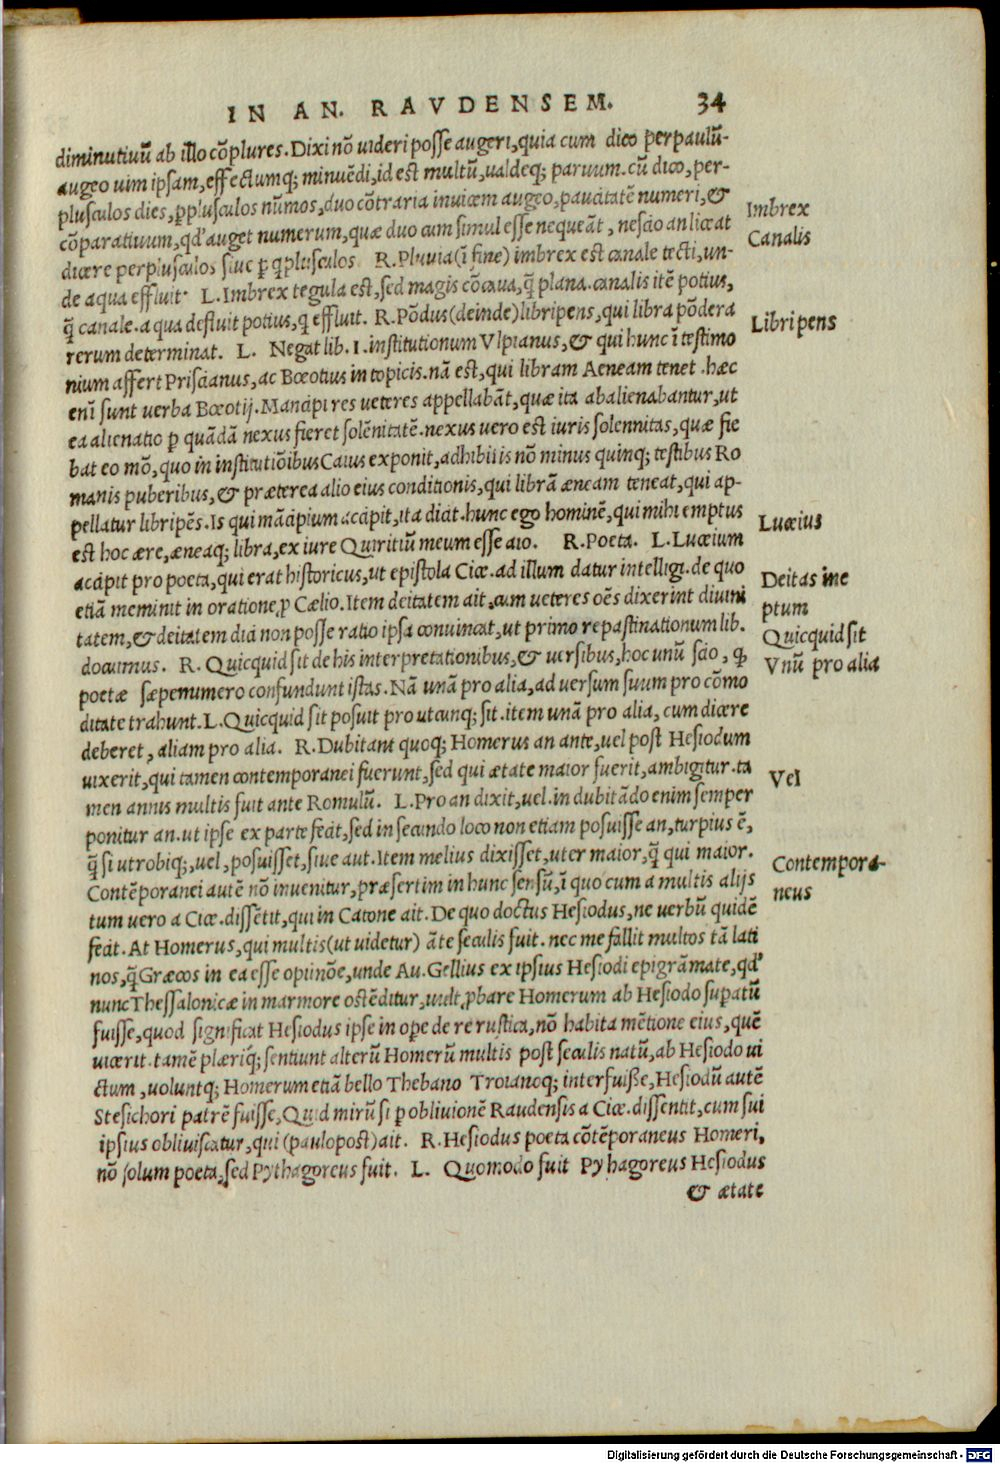 IN AN. RAVDENSEM. 34
diminutiuũ ab illo cõplures. Dixi nõ uideri posse augeri, quia cum dico perpaulũ-
augeo uim ipsam, effectumq; minuẽdi, id est multũ, ualdeq; paruum. cũ dico, per-
plusculos dies, ꝑplusculos nũmos, duo cõtraria inuicem augeo, paucitatẽ numeri, &
cõparatiuum, qd' auget numerum, quæ duo cum simul esse nequeãt, nescio an liceat
dicere perplusculos siue ꝑ q̃plusculos. R. Pluuia (ĩ fine) imbrex est canale tecti, un-
de aqua effluit. L. Imbrex tegula est, sed magis cõcaua, q̃ plana. canalis itẽ potius,
q̃ canale. aqua defluit potius, q̃ effluit. R. Põdus (deinde) libripens, qui libra põdera
rerum determinat. L. Negat lib. 1. institutionum Vlpianus, & qui hunc ĩ testimo
nium affert Priscianus, ac Boetius in topicis. nã est, qui libram Aeneam tenet. hæc
enĩ sunt uerba Boetij. Mancipi res ueteres appellabãt, quæ ita abalienabantur, ut
ea alienatio ꝑ quãdã nexus fieret solẽnitatẽ. nexus uero est iuris solennitas, quæ fie
bat eo mõ, quo in institutiõibus Caius exponit, adhibitis nõ minus quinq; testibus Ro
manis puberibus, & præterea alio eius conditionis, qui librã æneam teneat, qui ap-
pellatur libripẽs. Is qui mãcipium accipit, ita dicit. hunc ego hominẽ, qui mihi emptus
est hoc ære, æneaq; libra, ex iure Quiritiũ meum esse aio. R. Poeta. L. Lucceium
accipit pro poeta, qui erat historicus, ut epistola Cice. ad illum datur intelligi. de quo
etiã meminit in oratione ꝓ Cælio. Item deitatem ait. cum ueteres oẽs dixerint diuini
tatem, & deitatem dici non posse ratio ipsa conuincat, ut primo repastinationum lib.
docuimus. R. Quicquid sit de his interpretationibus, & uersibus, hoc unũ scio, ꝙ
poetæ sæpenumero confundunt istas. Nã unã pro alia, ad uersum suum pro cõmo
ditate trahunt. L. Quicquid sit posuit pro utcunq; sit. item unã pro alia, cum dicere
deberet, aliam pro alia. R. Dubitant quoq; Homerus an ante, uel post Hesiodum
uixerit, qui tamen contemporanei fuerunt, sed qui ætate maior fuerit, ambigitur. ta
men annis multis fuit ante Romulũ. L. Pro an dixit, uel. in dubitãdo enim semper
ponitur an. ut ipse ex parte fecit, sed in secundo loco non etiam posuisse an, turpius ẽ,
q̃ si utrobiq;, uel, posuisset, siue aut. Item melius dixisset, uter maior, q̃ qui maior.
Contẽporanei autẽ nõ inuenitur, præsertim in hunc sensũ, ĩ quo cum a multis alijs
tum uero a Cice. dissẽtit, qui in Catone ait. De quo doctus Hesiodus, ne uerbũ quidẽ
fecit. At Homerus, qui multis (ut uidetur) ãte seculis fuit. nec me fallit multos tã lati
nos, q̃ Græcos in ea esse opinõe, unde Au. Gellius ex ipsius Hesiodi epigrãmate, qd'
nunc Thessalonicæ in marmore ostẽditur, uult ꝓbare Homerum ab Hesiodo supatũ
fuisse, quod significat Hesiodus ipse in ope de re rustica, nõ habita mẽtione eius, quẽ
uicerit. tamẽ plæriq; sentiunt alterũ Homerũ multis post seculis natũ, ab Hesiodo ui
ctum, uoluntq; Homerum etiã bello Thebano Troianoq; interfuisse, Hesiodũ autẽ
Stesichori patrẽ fuisse, Quid mirũ si ꝑ obliuionẽ Raudensis a Cice. dissentit, cum sui
ipsius obliuiscatur, qui (paulo post) ait. R. Hesiodus poeta cõtẽporaneus Homeri,
nõ solum poeta, sed Pythagoreus fuit. L. Quomodo fuit Pythagoreus Hesiodus
& ætate
Imbrex
Canalis
Libripens
Lucceius
Deitas ine
ptum
Quicquid sit
Vnũ pro alia
Vel
Contempora-
neus
Digitalisierung gefördert durch die Deutsche Forschungsgemeinschaft - DFG